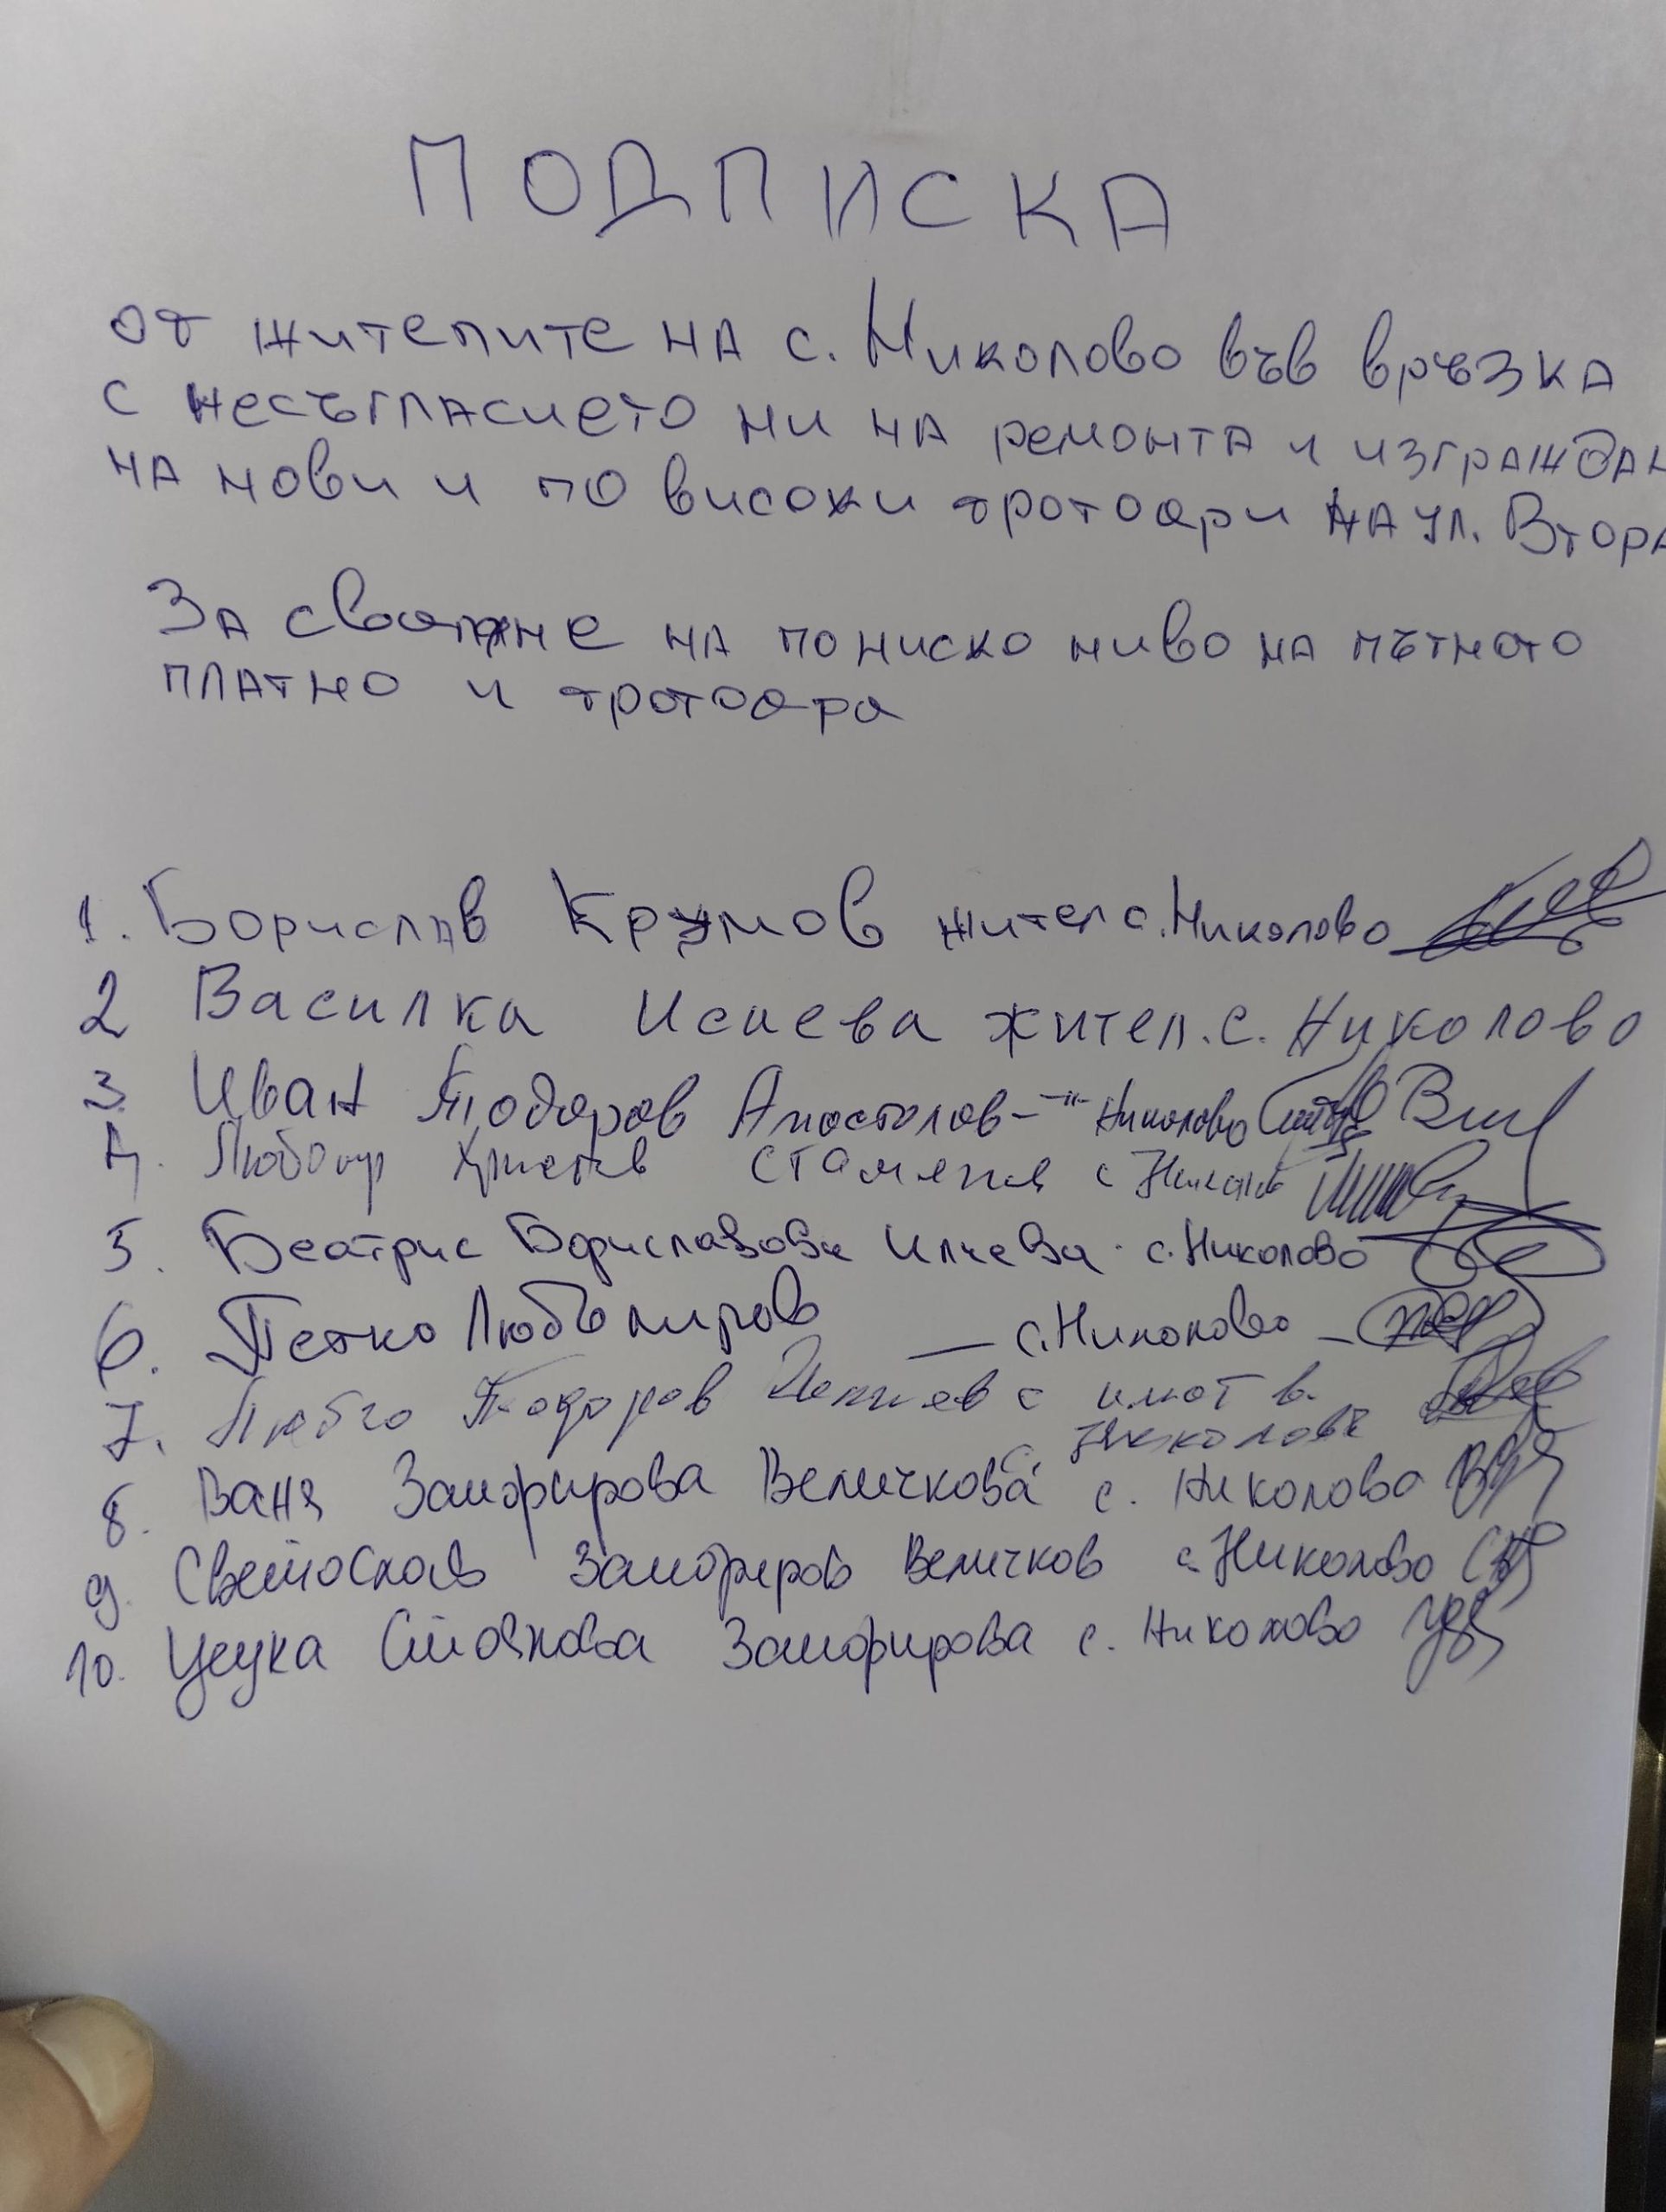 ПОДПИСКА
от жителите на с. Николово във връзка
с несъгласието ни на ремонта и изграждан
на нови и по високи тротоари на ул. Втора
За сваляне на по ниско ниво на пътното
платно и тротоара
1. Борислав Крумов жител с. Николово
2 Василка Исаева жител. с. Николово
3 Иван Тодоров Апостолов - -"- Николово
4. Любомир Христов с Николово
5. Беатрис Бориславова Илчева. с. Николово
6. Петко Любомиров — с. Николово -
7. Любчо Тодоров с имот в.
с. Николово
8. Ваня Замфирова Величкова с. Николово
9. Светослав Замфиров Величков с. Николово
10. Цецка Стоянова Замфирова с. Николово